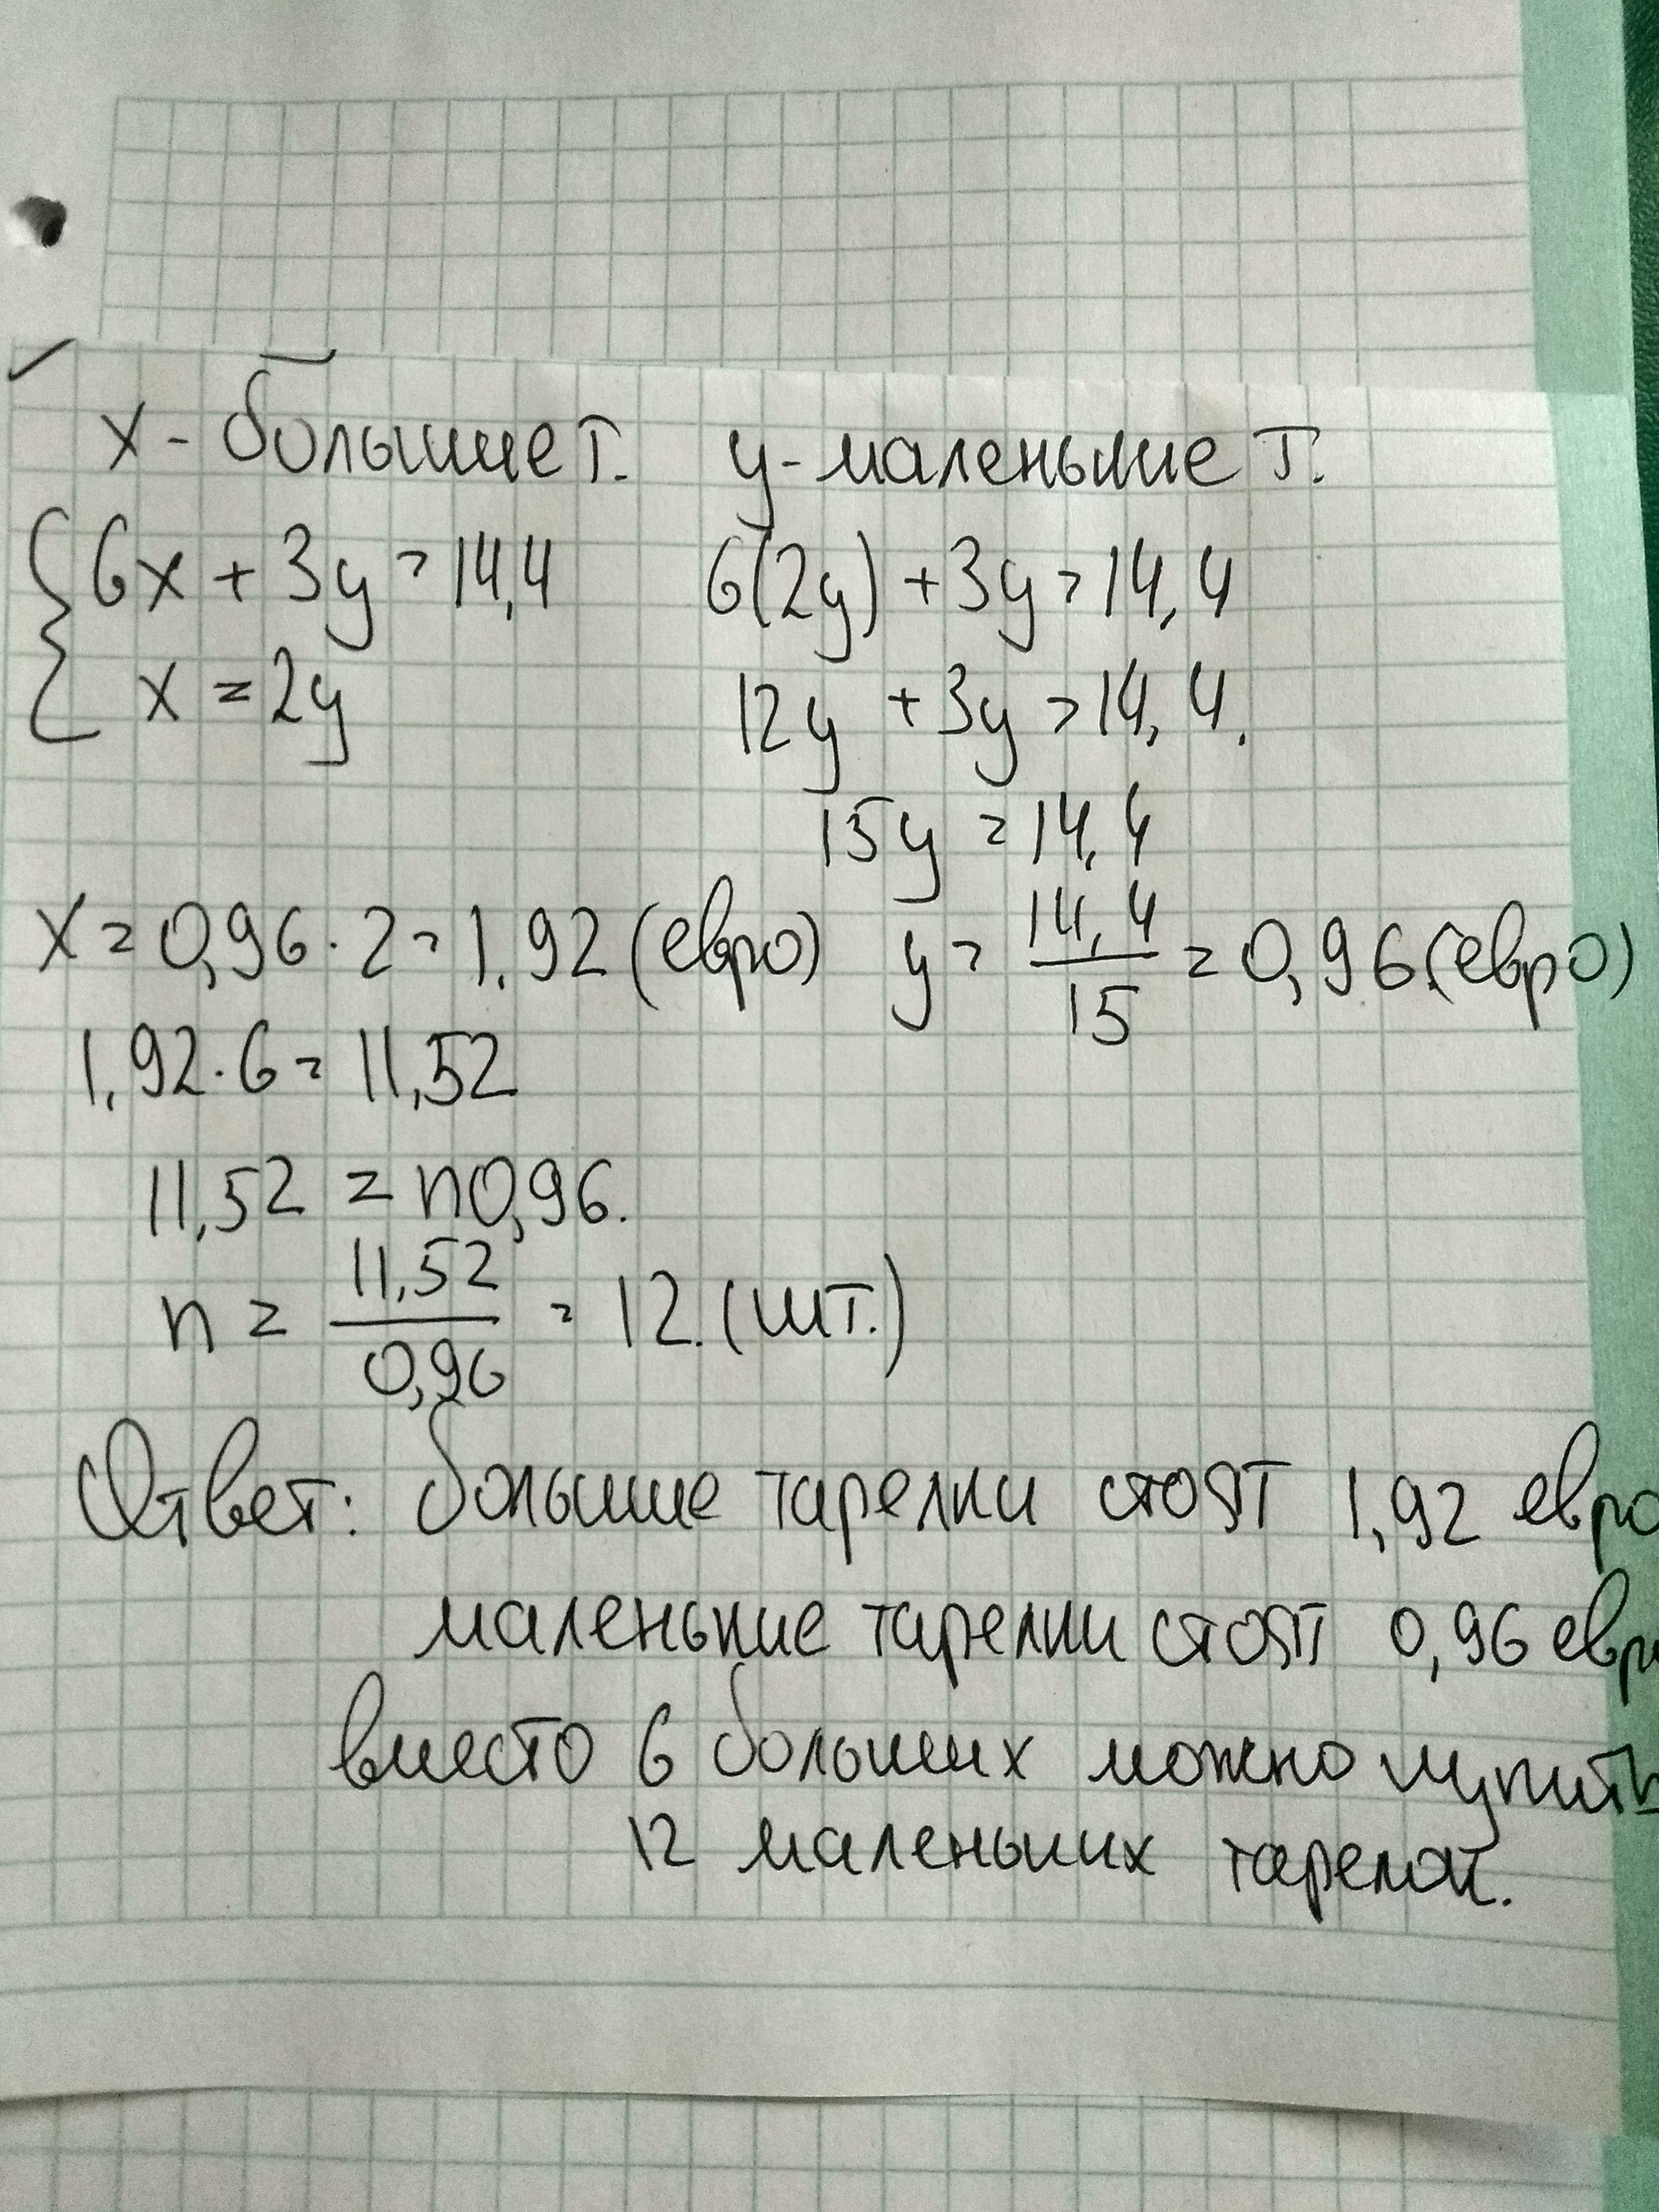 x - большие т. y - маленькие т.
6x + 3y = 14,4 6(2y) + 3y = 14,4
x = 2y 12y + 3y = 14,4.
15y = 14,4
x = 0,96 · 2 = 1,92 (евро) y = 14,4/15 = 0,96 (евро)
1,92 · 6 = 11,52
11,52 = n0,96.
n = 11,52/0,96 = 12. (шт.)
Ответ: большие тарелки стоят 1,92 евро
маленькие тарелки стоят 0,96 евро
вместо 6 больших можно купить
12 маленьких тарелок.